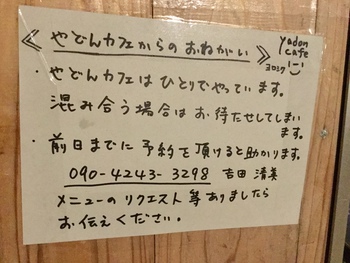 《やどんカフェからのおねがい》
yadon
cafe
ヨロシク
・やどんカフェはひとりでやっています。
混み合う場合はお待たせしてしまい
ます。
・前日までに予約を頂けると助かります。
090-4243-3298 吉田 清美
メニューのリクエスト等ありましたら
お伝えください。